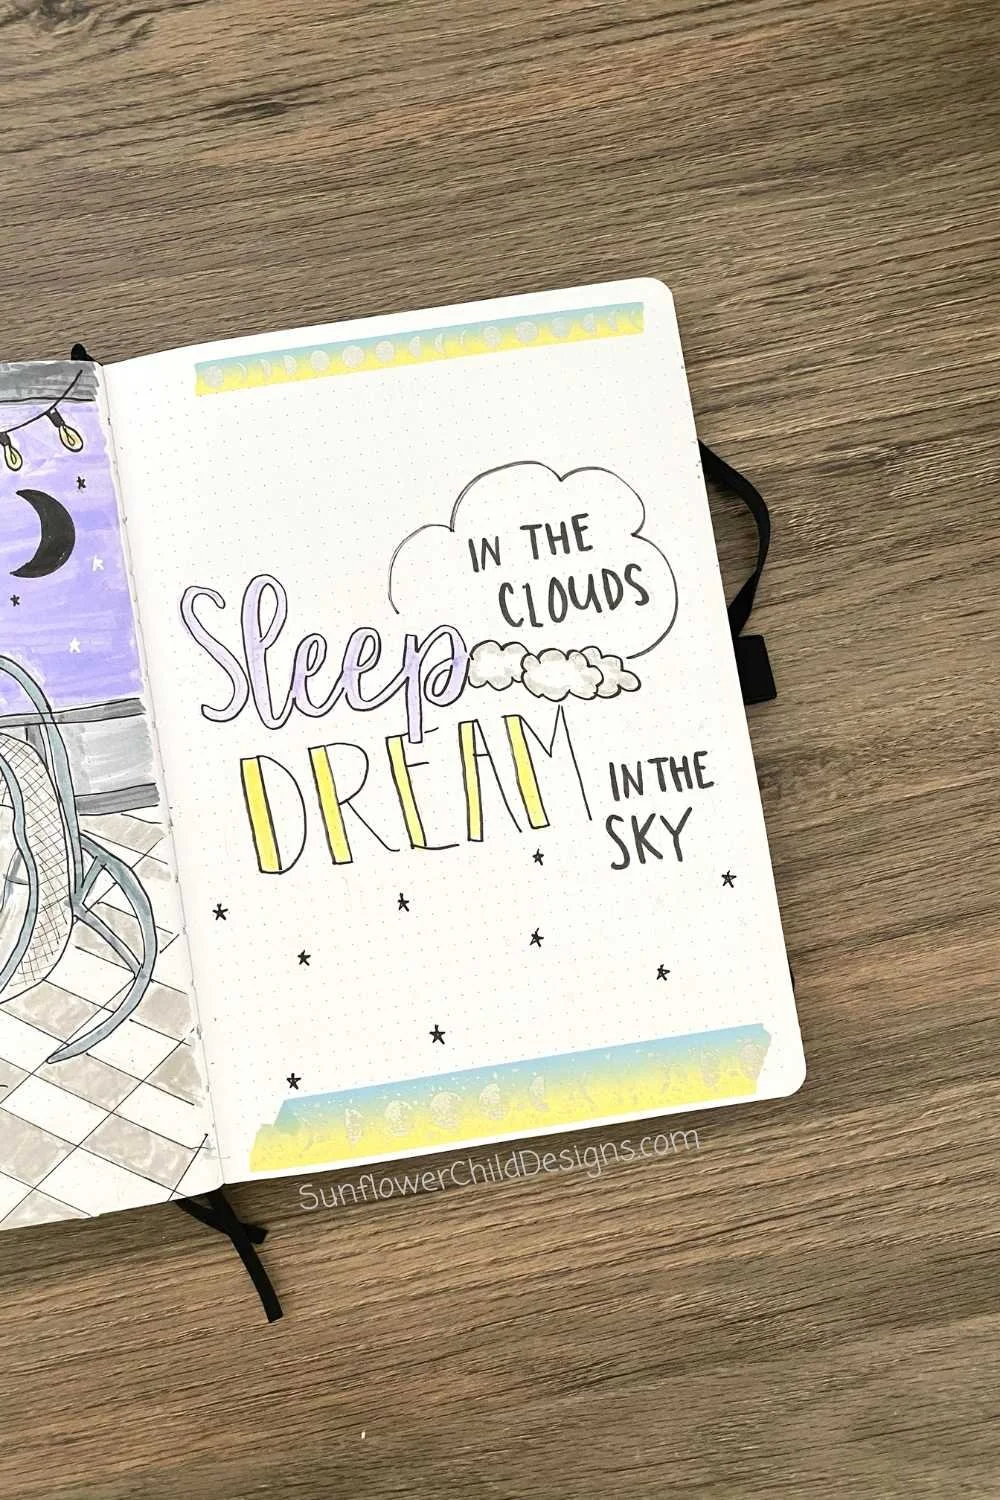 IN THE
CLOUDS
Sleep
DREAM
IN THE
SKY
SunflowerChildDesigns.com